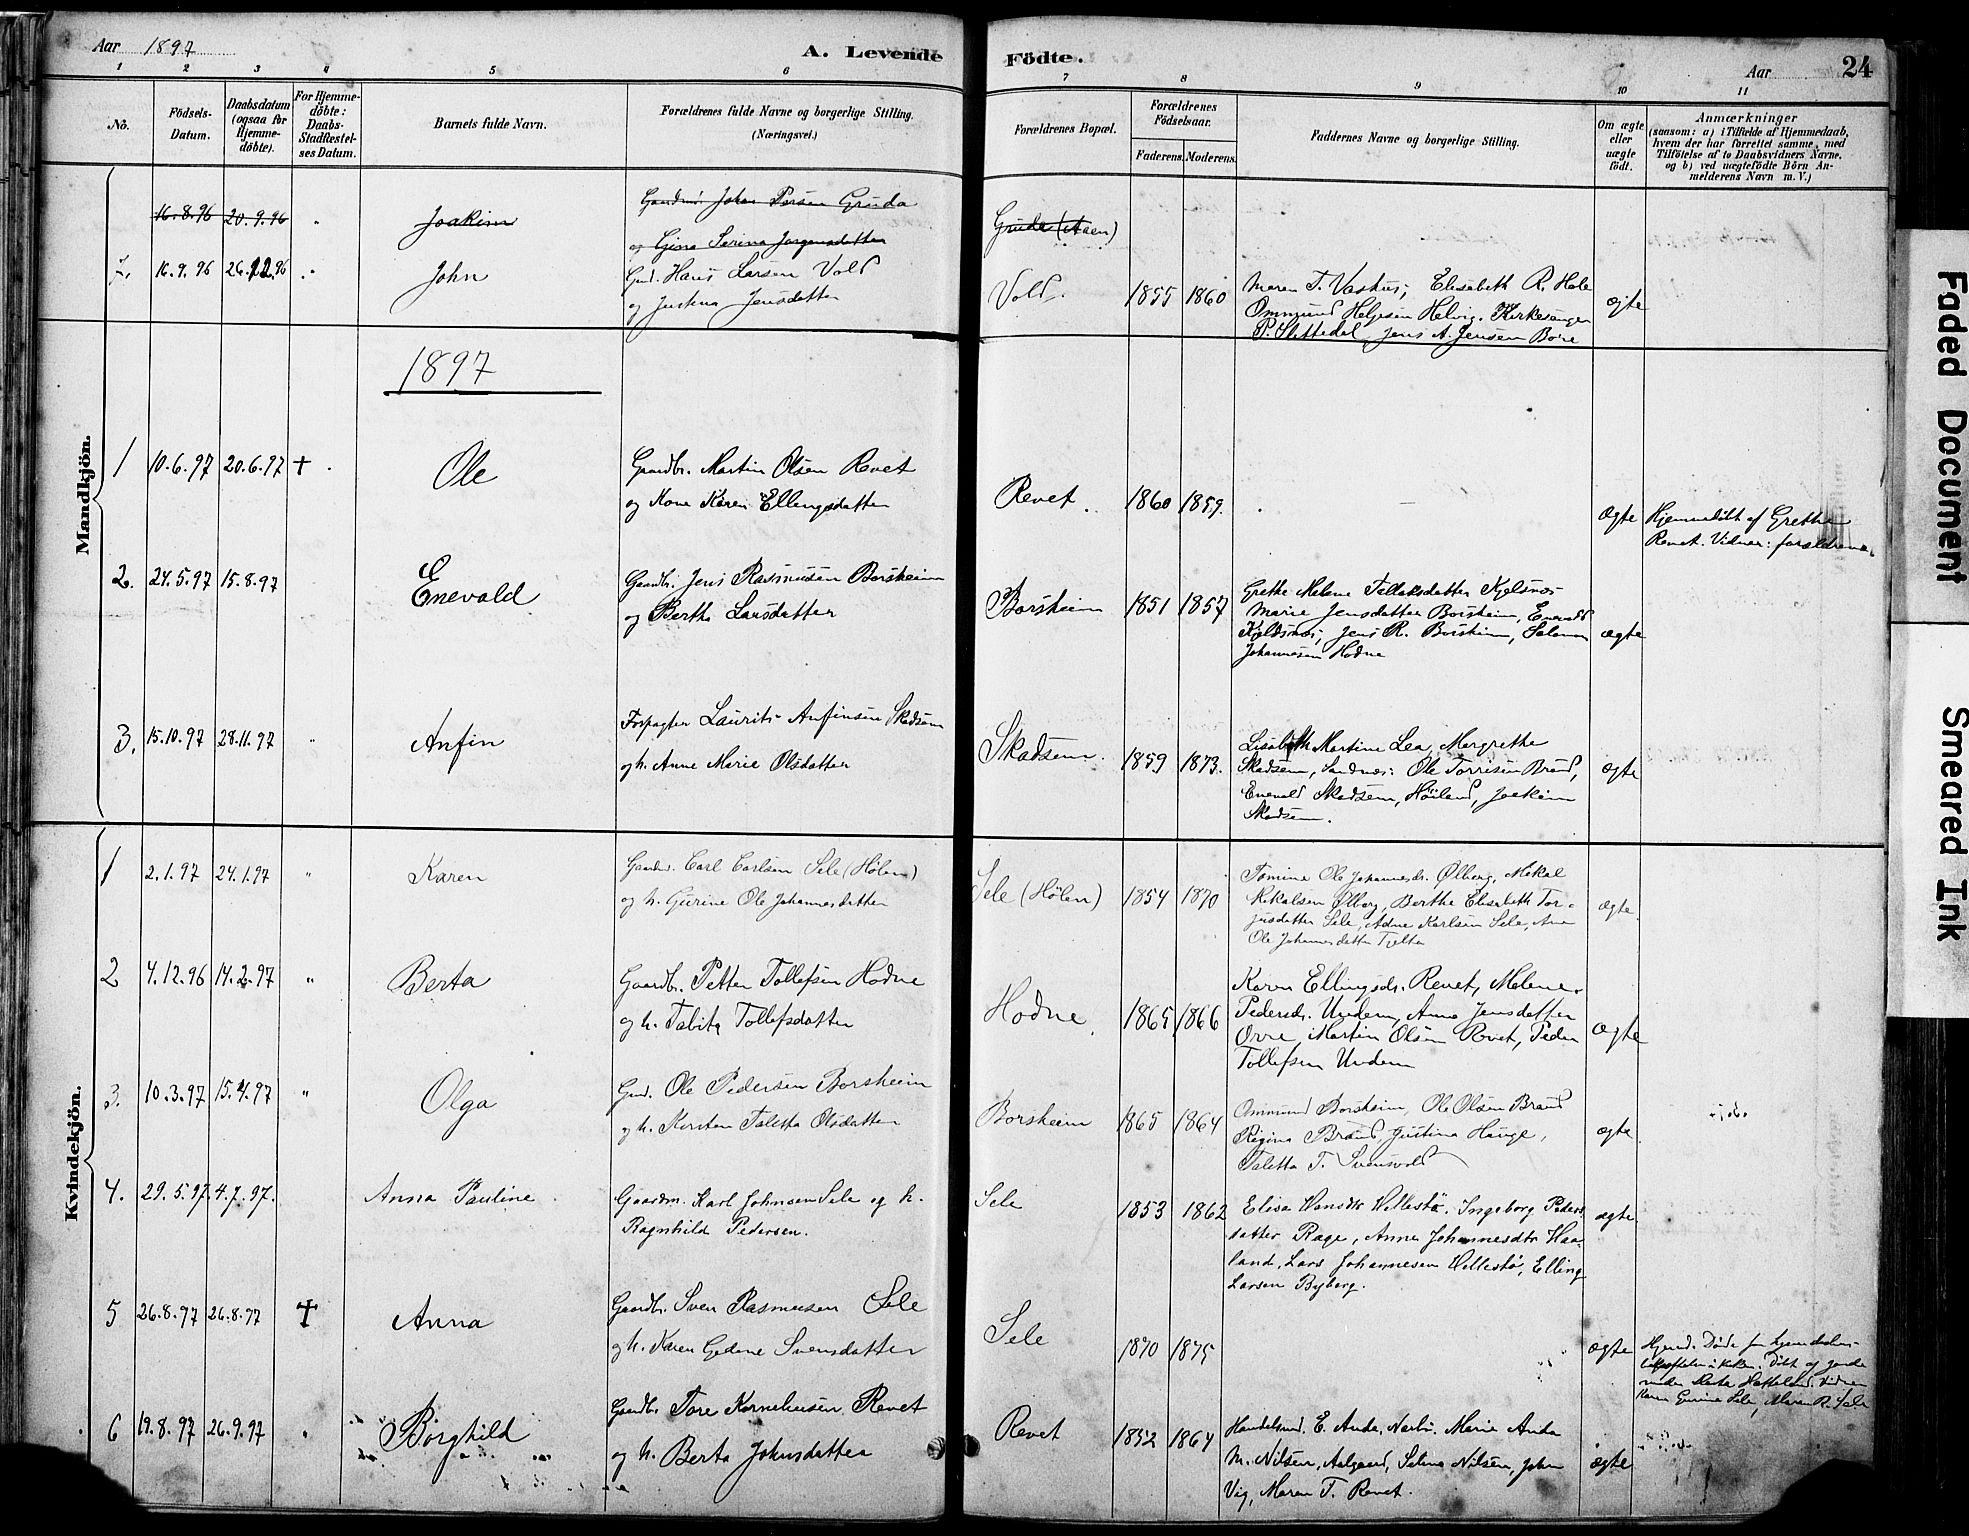 Aar 1897
A. Levende Födte.
Aar
24
1 2 3 4 5 6 7 8 9 10 11
No.
Födsels-
Datum.
Daabsdatum
(ogsaa for
Hjemme-
döbte).
For Hjemme-
döbte:
Daabs-
Stadfæstel-
ses Datum.
Barnets fulde Navn.
Forældrenes fulde Navne og borgerlige Stilling.
(Næringsvei.)
Forældrenes Bopæl.
Forældrenes
Födselsaar.
Faderens. Moderens.
Faddernes Navne og borgerlige Stilling.
Om ægte
eller
uægte
født.
Anmærkninger
(saasom: a) i Tilfælde af Hjemmedaab,
hvem der har forrettet samme, med
Tilföielse af to Daabsvidners Navne,
og b) ved uægtefödte Börn An-
melderens Navn m. V.)
Mandkjön.
16.8.96 20.9.96 " Joakim
Johan Persen Gruda
og Gina Serina Jorgensdatter
Gruda (Aaen)
7. 16.9.96 26.12.96 John
Hans Larsen Vold
og Justina Jensdatter
Vold. 1855 1860
Maren T. Vashus, Elisabeth R. Hole
Ommund Helgesen Helvig, Kirkesanger
P. Slettedal, Jens A. Jensen Böre
ægte
1897
1 10.6.97 20.6.97 + Ole
Gaardbr. Martin Olsen Revet
og Kone Karen Ellingsdatter
Revet. 1860 1859.
Ægte
Hjemmedöbt af Grethe
Revet. Vidner: forældrene.
2. 24.5.97 15.8.97 Enevald
Gaardbr. Jens Rasmussen Borsheim
og Berthe Larsdatter
Borsheim 1851 1857
Grethe Melene Tollaksdatter Kjelsnæs
Marie Jensdatter Borsheim, Enevald
Kjeldsnæs, Jens R. Borsheim, Salomon
Johannesen Hodne
ægte
3. 15.10.97 28.11.97 " Anfin
Forpagter Laurits Anfinsen Skadsem
og h. Anne Marie Olsdatter
Skadsem. 1859 1873.
Lisabeth Martine Lea, Margrethe
Skadsem, Sandnæs: Ole Torrisen Brand,
Enevald Skadsem, Höiland, Joakim
Skadsem.
ægte
Kvindekjön.
1 2.1.97 24.1.97 " Karen
Carl Carlsen Sele (Hölen)
og h. Gurine Ole Johannesdatter
Sele (Hölen) 1854 1870
Tomine Ole Johannesdr. Ølberg, Mikal
Mikalsen Ølberg, Berthe Elisabeth Tor-
jusdatter Sele, Adne Karlsen Sele, Ane
Ole Johannesdatter Tjelta
ægte.
2 4.12.96 14.2.97 " Berta
Gaardbr. Petter Tollefsen Hodne
og h. Talita Tollefsdatter
Hodne 1865 1866
Karen Ellingsdr. Revet, Melene
Pedersdr. Undem, Anne Jensdatter
Orre, Martin Olsen Revet, Peder
Tollefsen Undem
ægte
3. 10.3.97 15.4.97 " Olga
Ole Pedersen Borsheim
og h. Kirsten Taletta Olsdatter
Borsheim 1865 1864
Ommund Borsheim, Ole Olsen Brand
Regina Brand, Justina Hauge,
Taletta T. Svensvold
ægte
4. 29.5.97 4.7.97. Anna Pauline
Gaardm. Karl Johnsen Sele og h.
Ragnhild Pedersen.
Sele 1853 1862
Elisa Hansdtr Vellestö. Ingeborg Peders
datter Rage, Anne Johannesdtr Haa-
land, Lars Johannesen Vellestö, Elling
Larsen Byberg.
ægte
5 26.8.97 26.8.97 + Anna
Gaardbr. Sven Rasmussen Sele
og h. Karen Gedene Svensdatter
Sele 1870 1875
ægte
Döbt af jorde
moder Marta Hatteland. Vidner
Karen Gurine Sele, Maren R. Sele
6 19.8.97 26.9.97 " Borghild
Gaardbr. Tore Korneliusen Revet
og h. Berta Johnsdatter
Revet 1852 1864
E. Anda, Nærbö. Marie Anda
M. Nilsen, Aalgaard, Selina Nilsen, John
Vig, Maren T. Revet.
ægte
Faded Document
Smeared Ink